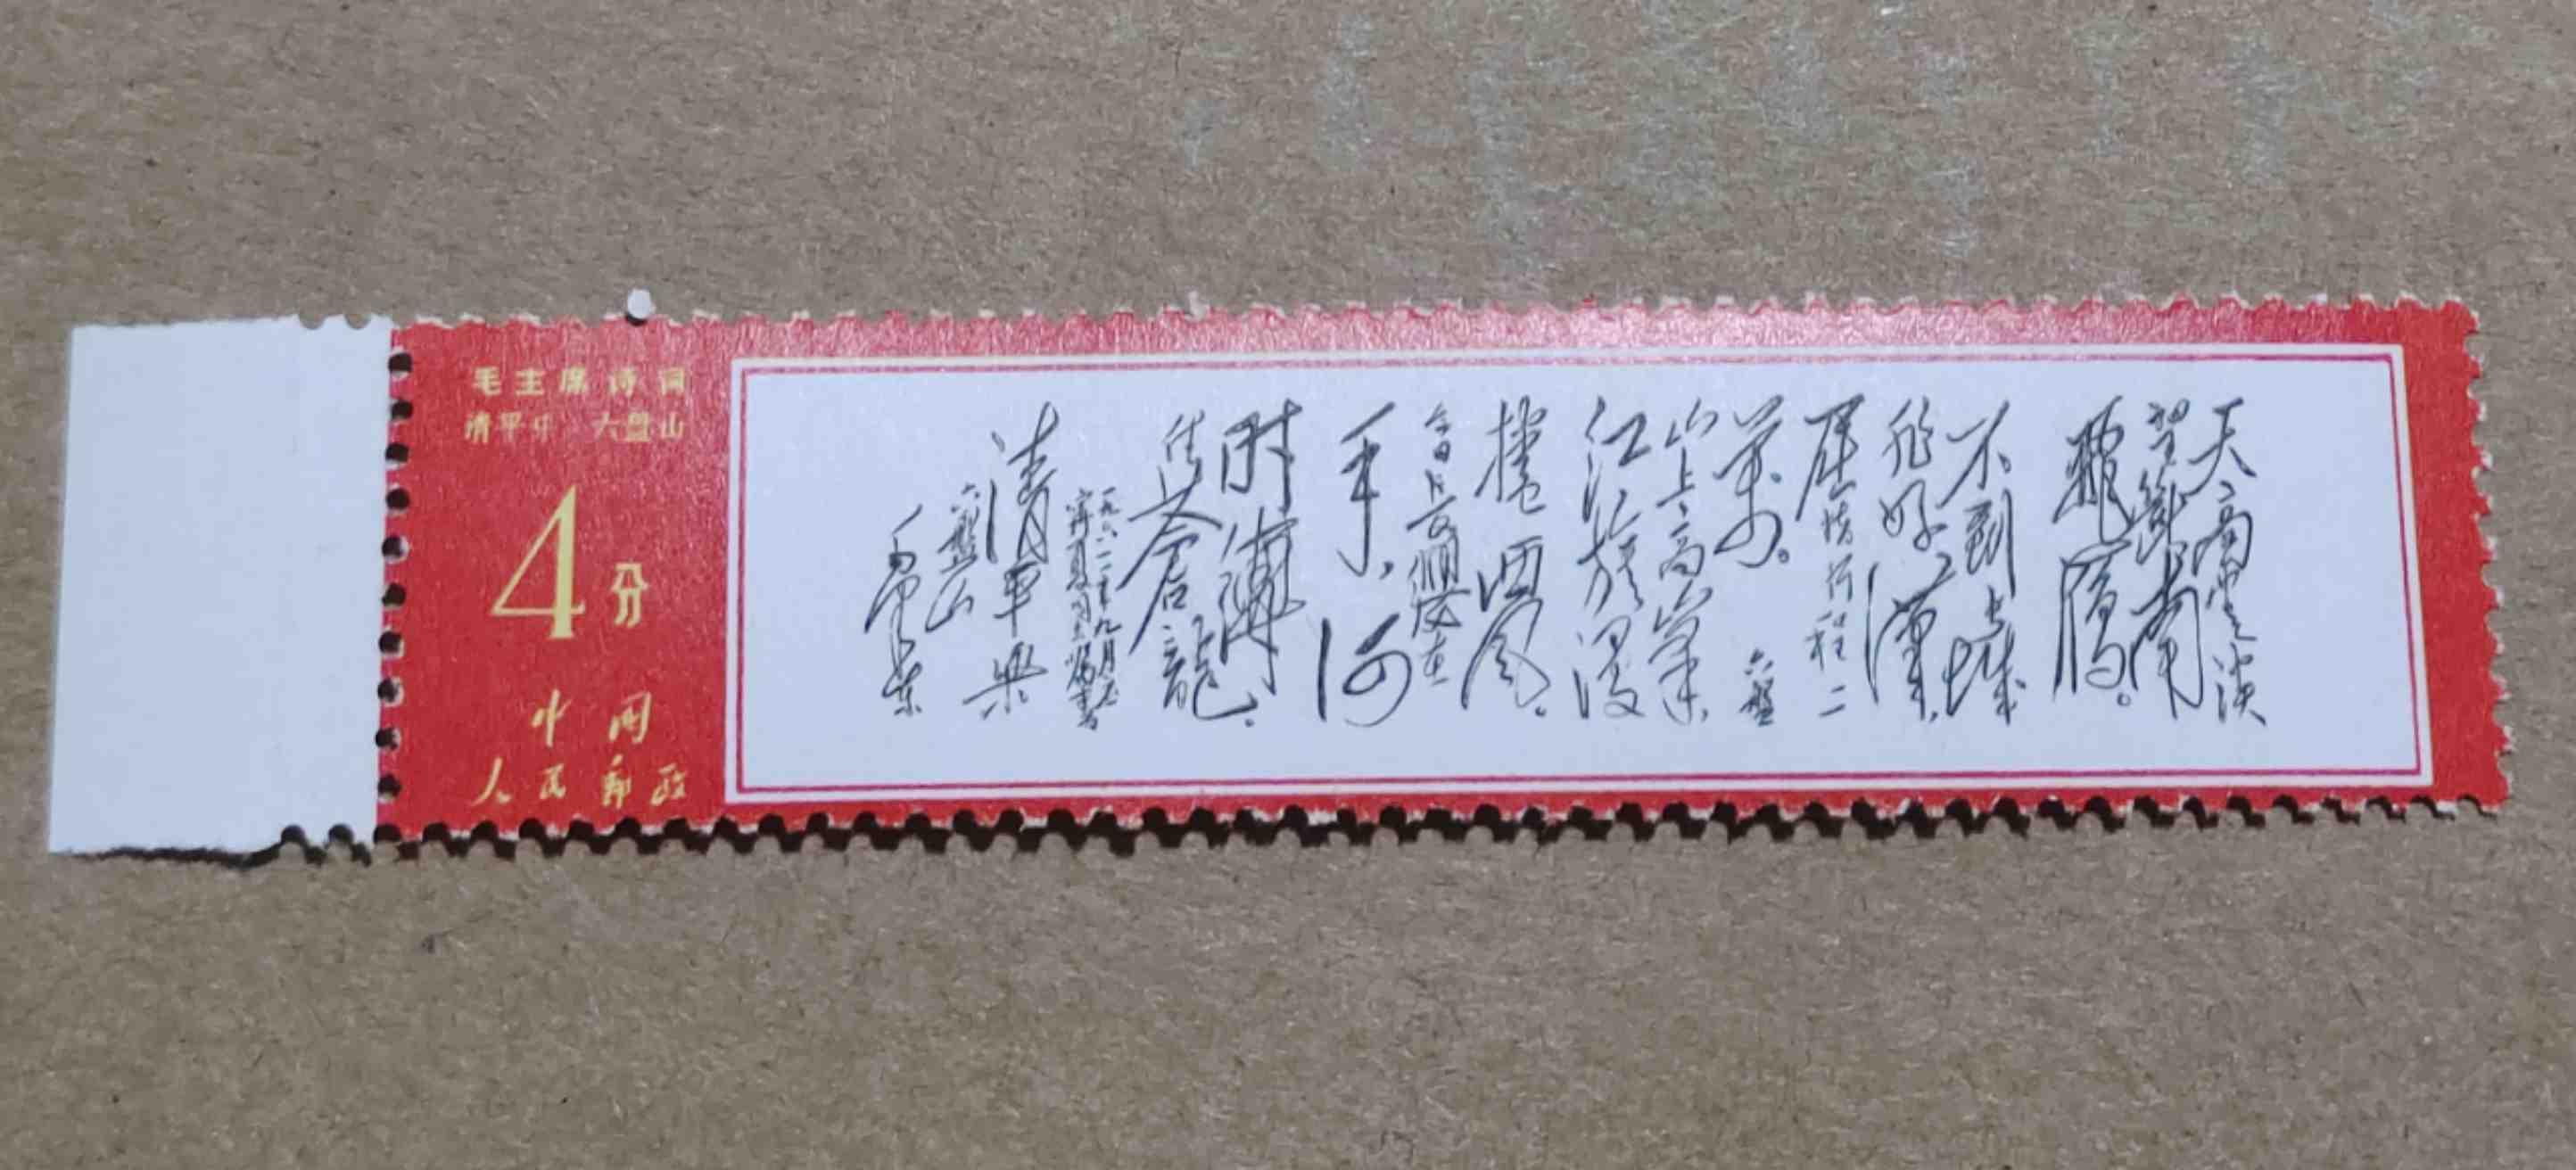 毛主席诗词
清平乐 六盘山
4分
中国
人民邮政
天高云淡
望断南
飞雁。
不到长城
非好汉，
屈指行程二
万。六盘
山上高峰，
红旗漫
捲西风。
今日长缨在
手，何
时缚
住苍龙。
一九六一年九月
宁夏同志嘱书
清平乐
六盘山
毛泽东